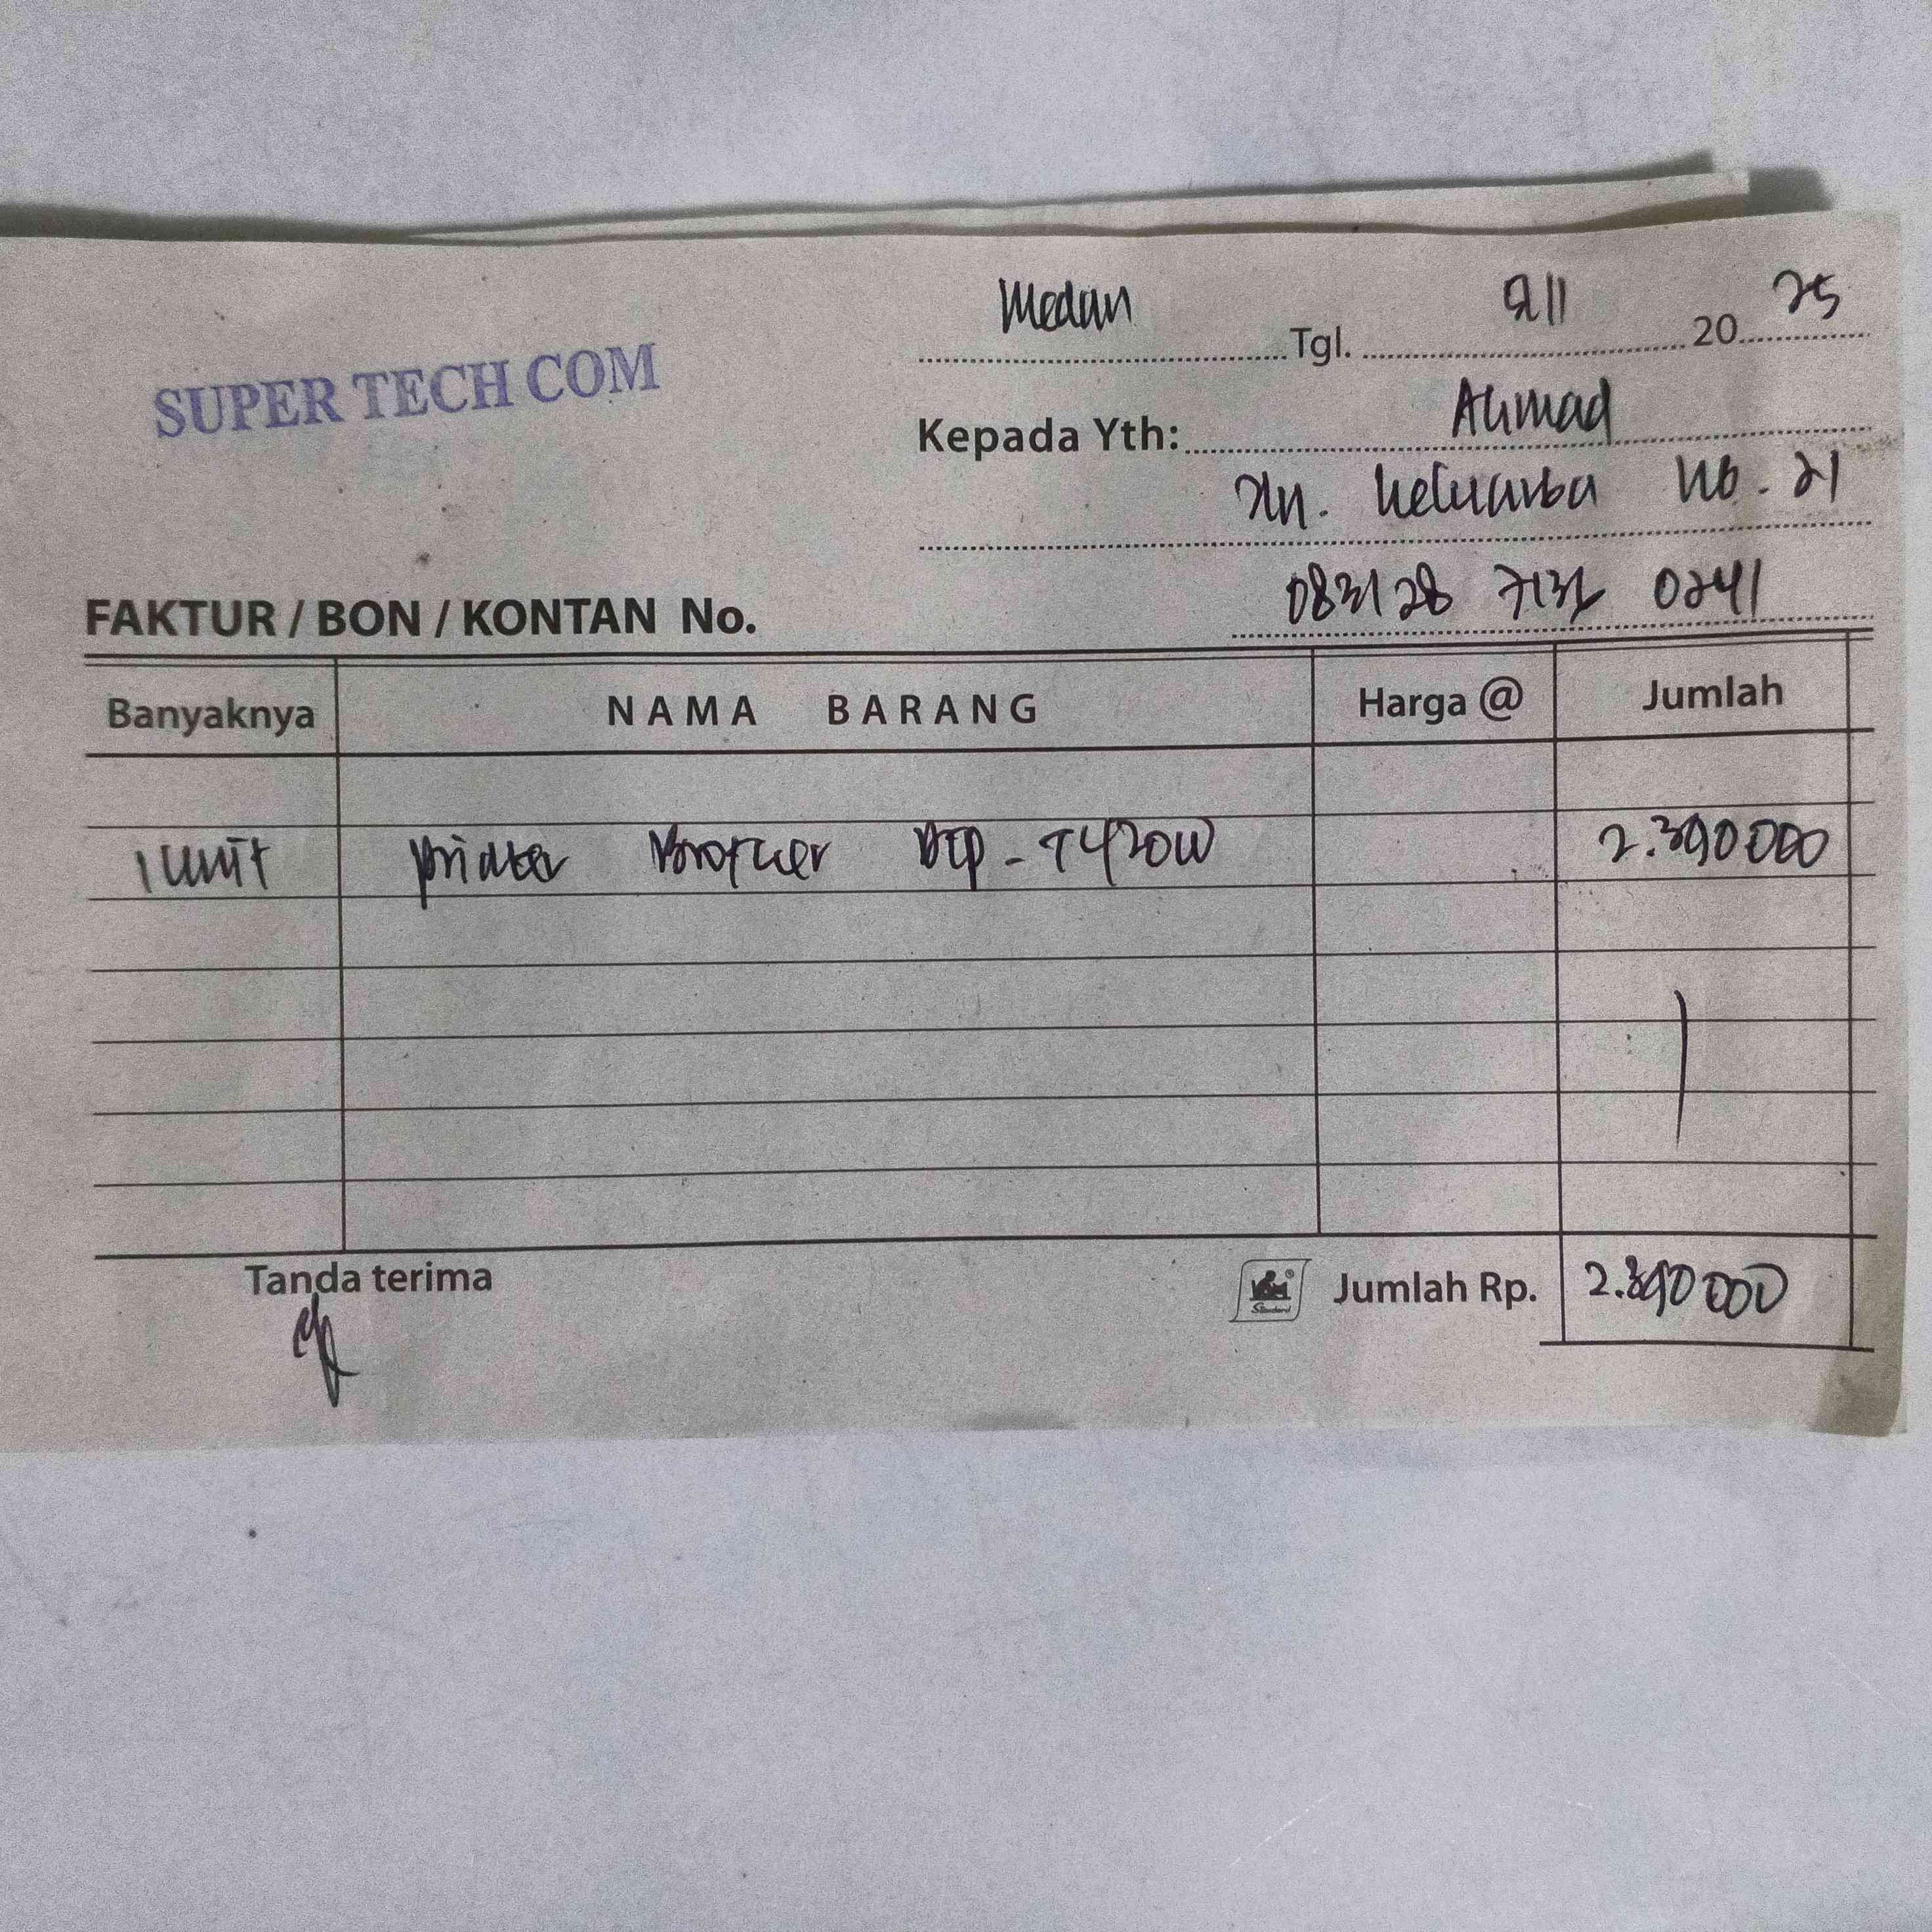 Medan Tgl. 2025
SUPER TECH COM
Kepada Yth: Ahmad
Jln. Keluarga No. 21
FAKTUR / BON / KONTAN No. 0241
Banyaknya NAMA BARANG Harga @ Jumlah
1 unit printer Brother DCP-T420W 2.390000
Tanda terima Standard Jumlah Rp. 2.390000